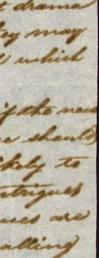 t drama
ey may
l which
if the new
e should
ikely to
ntrigues
nces are
alling